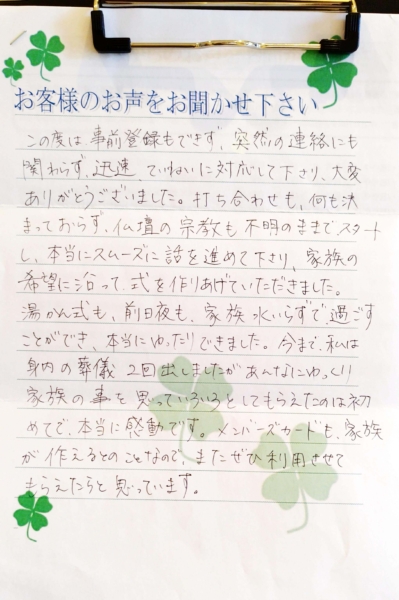 お客様のお声をお聞かせ下さい
この度は事前登録もできず、突然の連絡にも
関わらず、迅速、ていねいに対応して下さり、大変
ありがとうございました。打ち合わせも、何も決
まっておらず、仏壇の宗教も不明のままでスタート
し、本当にスムーズに話を進めて下さり、家族の
希望に沿って、式を作りあげていただきました。
湯かん式も、前日夜も、家族水いらずで過ごす
ことができ、本当にゆったりできました。今まで、私は
身内の葬儀2回出しましたがあんなにゆっくり
家族の事を思っていろいろとしてもらえたのは初
めてで、本当に感動です。メンバーズカードも、家族
が作えるとのことなので、またぜひ利用させて
もらえたらと思っています。